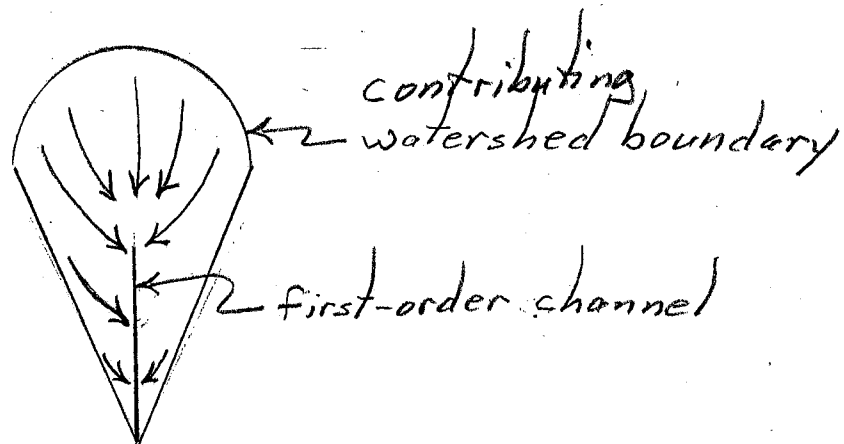 contributing
watershed boundary
first-order channel